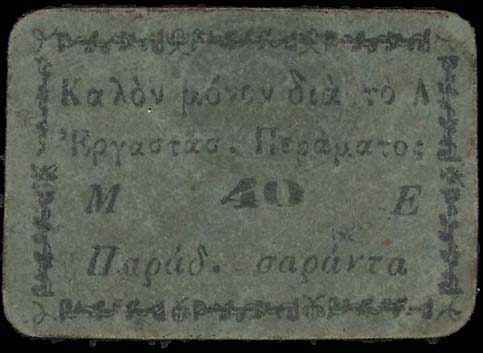 Καλὸν μόνον διὰ τὸ Α
Ἐργαστάσ. Περάματος
Μ 40 Ε
Παράδ. σαράντα